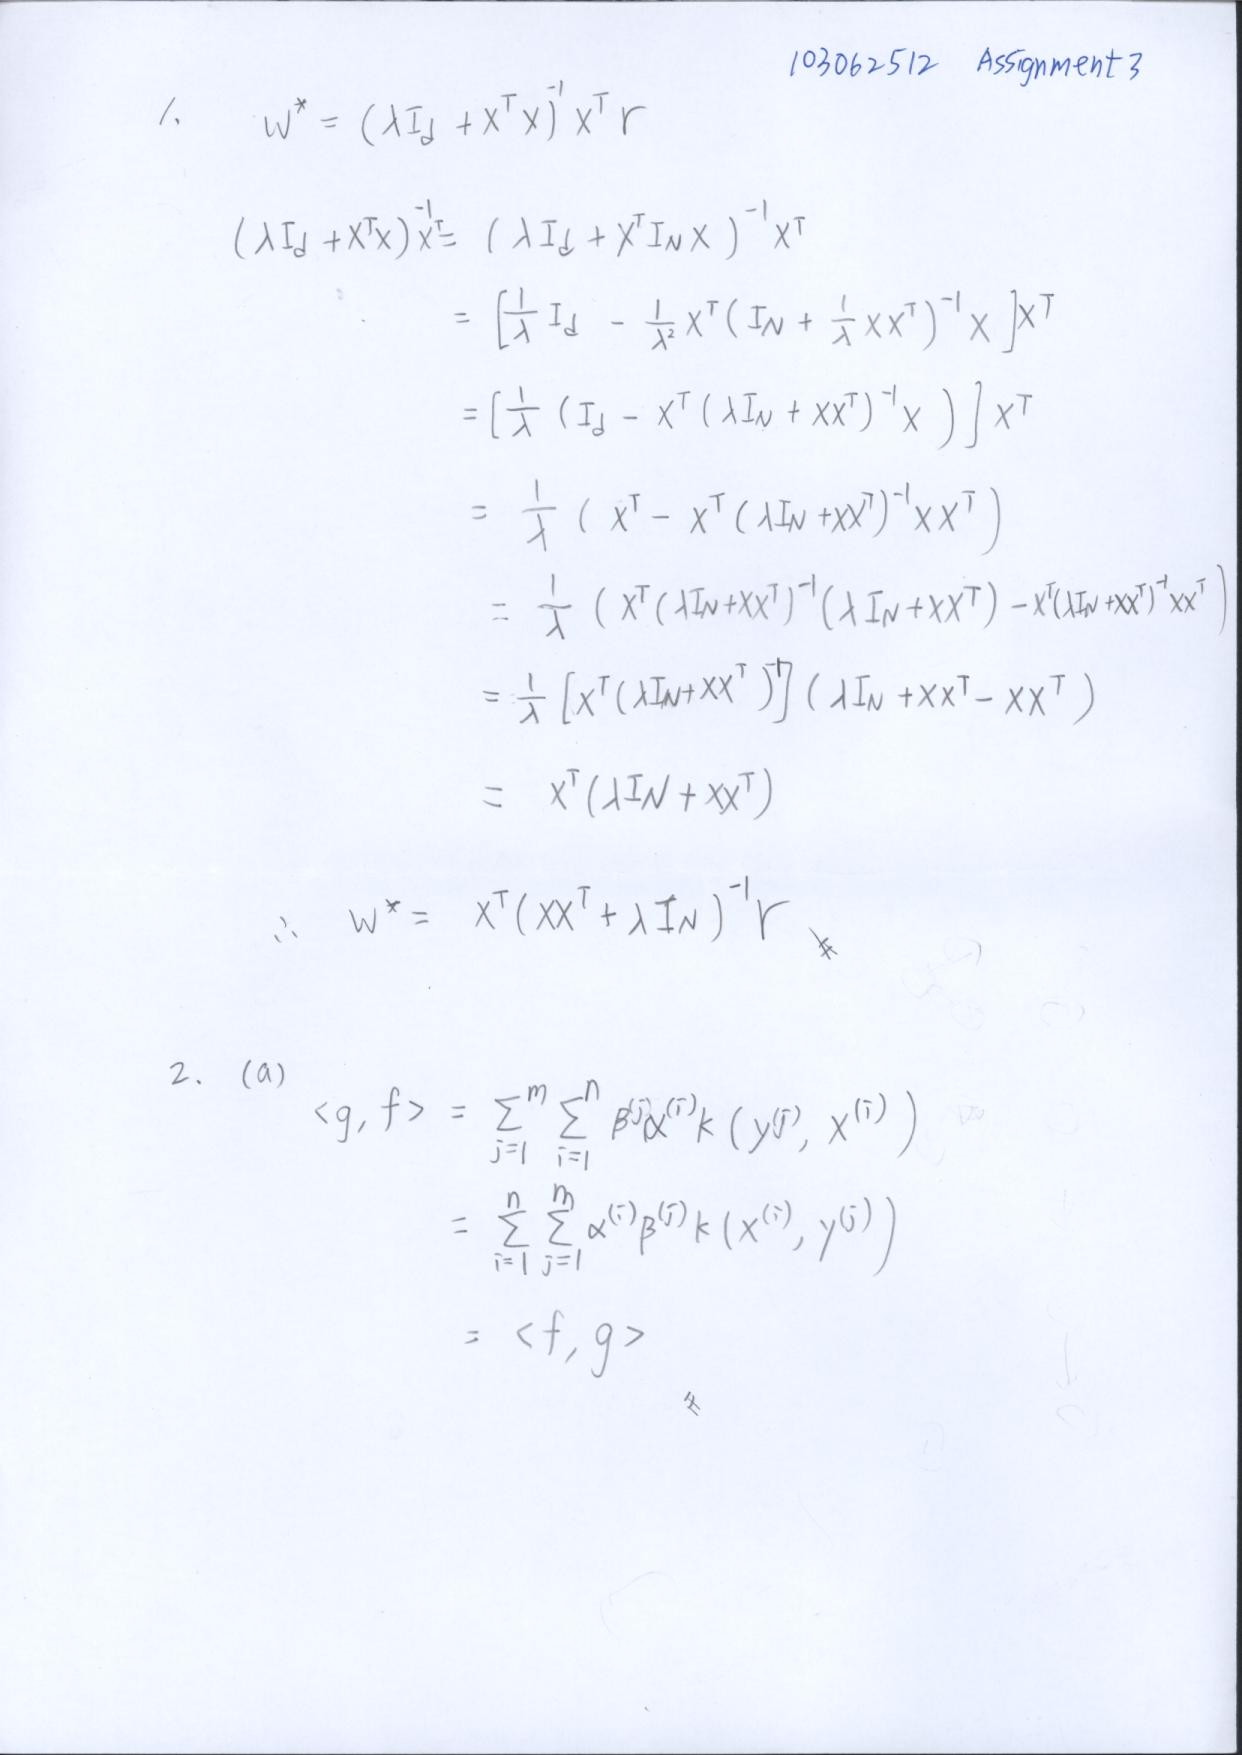 103062512 Assignment 3
1. w* = (λI_d + X^T X)^{-1} X^T r
(λI_d + X^T X)^{-1} X^T = (λI_d + X^T I_N X)^{-1} X^T
= [1/λ I_d - 1/λ² X^T (I_N + 1/λ XX^T)^{-1} X] X^T
= [1/λ (I_d - X^T (λI_N + XX^T)^{-1} X)] X^T
= 1/λ (X^T - X^T (λI_N + XX^T)^{-1} XX^T)
= 1/λ (X^T (λI_N + XX^T)^{-1} (λI_N + XX^T) - X^T (λI_N + XX^T)^{-1} XX^T)
= 1/λ [X^T (λI_N + XX^T)^{-1}] (λI_N + XX^T - XX^T)
= X^T (λI_N + XX^T)
∴ w* = X^T (XX^T + λI_N)^{-1} r #
2. (a)
<g, f> = ∑_{j=1}^m ∑_{i=1}^n β^{(j)} α^{(i)} k(y^{(j)}, x^{(i)})
= ∑_{i=1}^n ∑_{j=1}^m α^{(i)} β^{(j)} k(x^{(i)}, y^{(j)})
= <f, g>
#